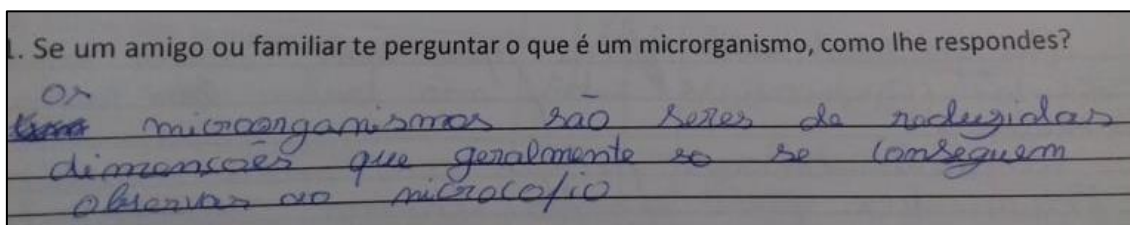 1. Se um amigo ou familiar te perguntar o que é um microrganismo, como lhe respondes?
Os
microorganismos são seres de reduzidas
dimensões que geralmente so se conseguem
observar ao microcofio